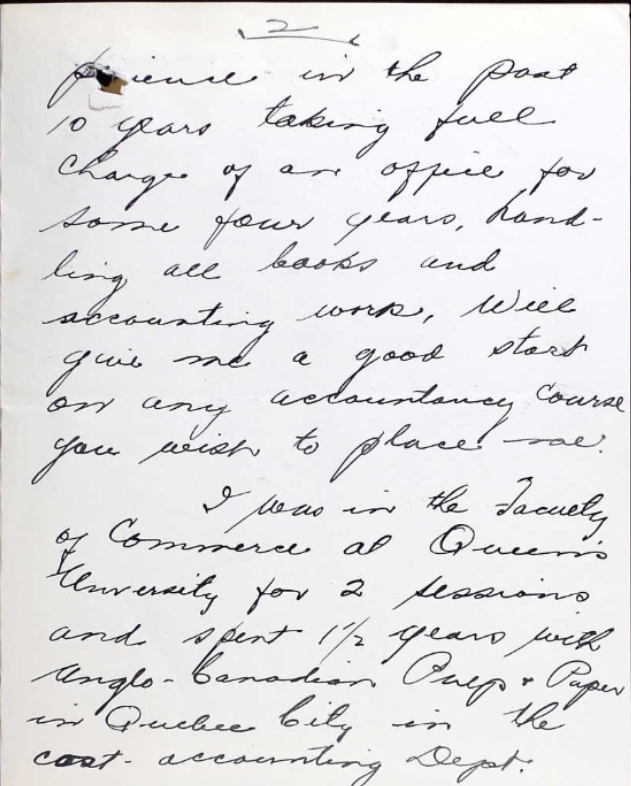 2
perience in the past
10 years taking full
charge of an office for
some four years, hand-
ling all books and
accounting work, Will
give me a good start
on any accountancy course
you wish to place me.
I was in the Faculty
of Commerce at Queen's
University for 2 sessions
and spent 1 1/2 years with
Anglo-Canadian Pulp & Paper
in Quebec City in the
cost-accounting Dept.